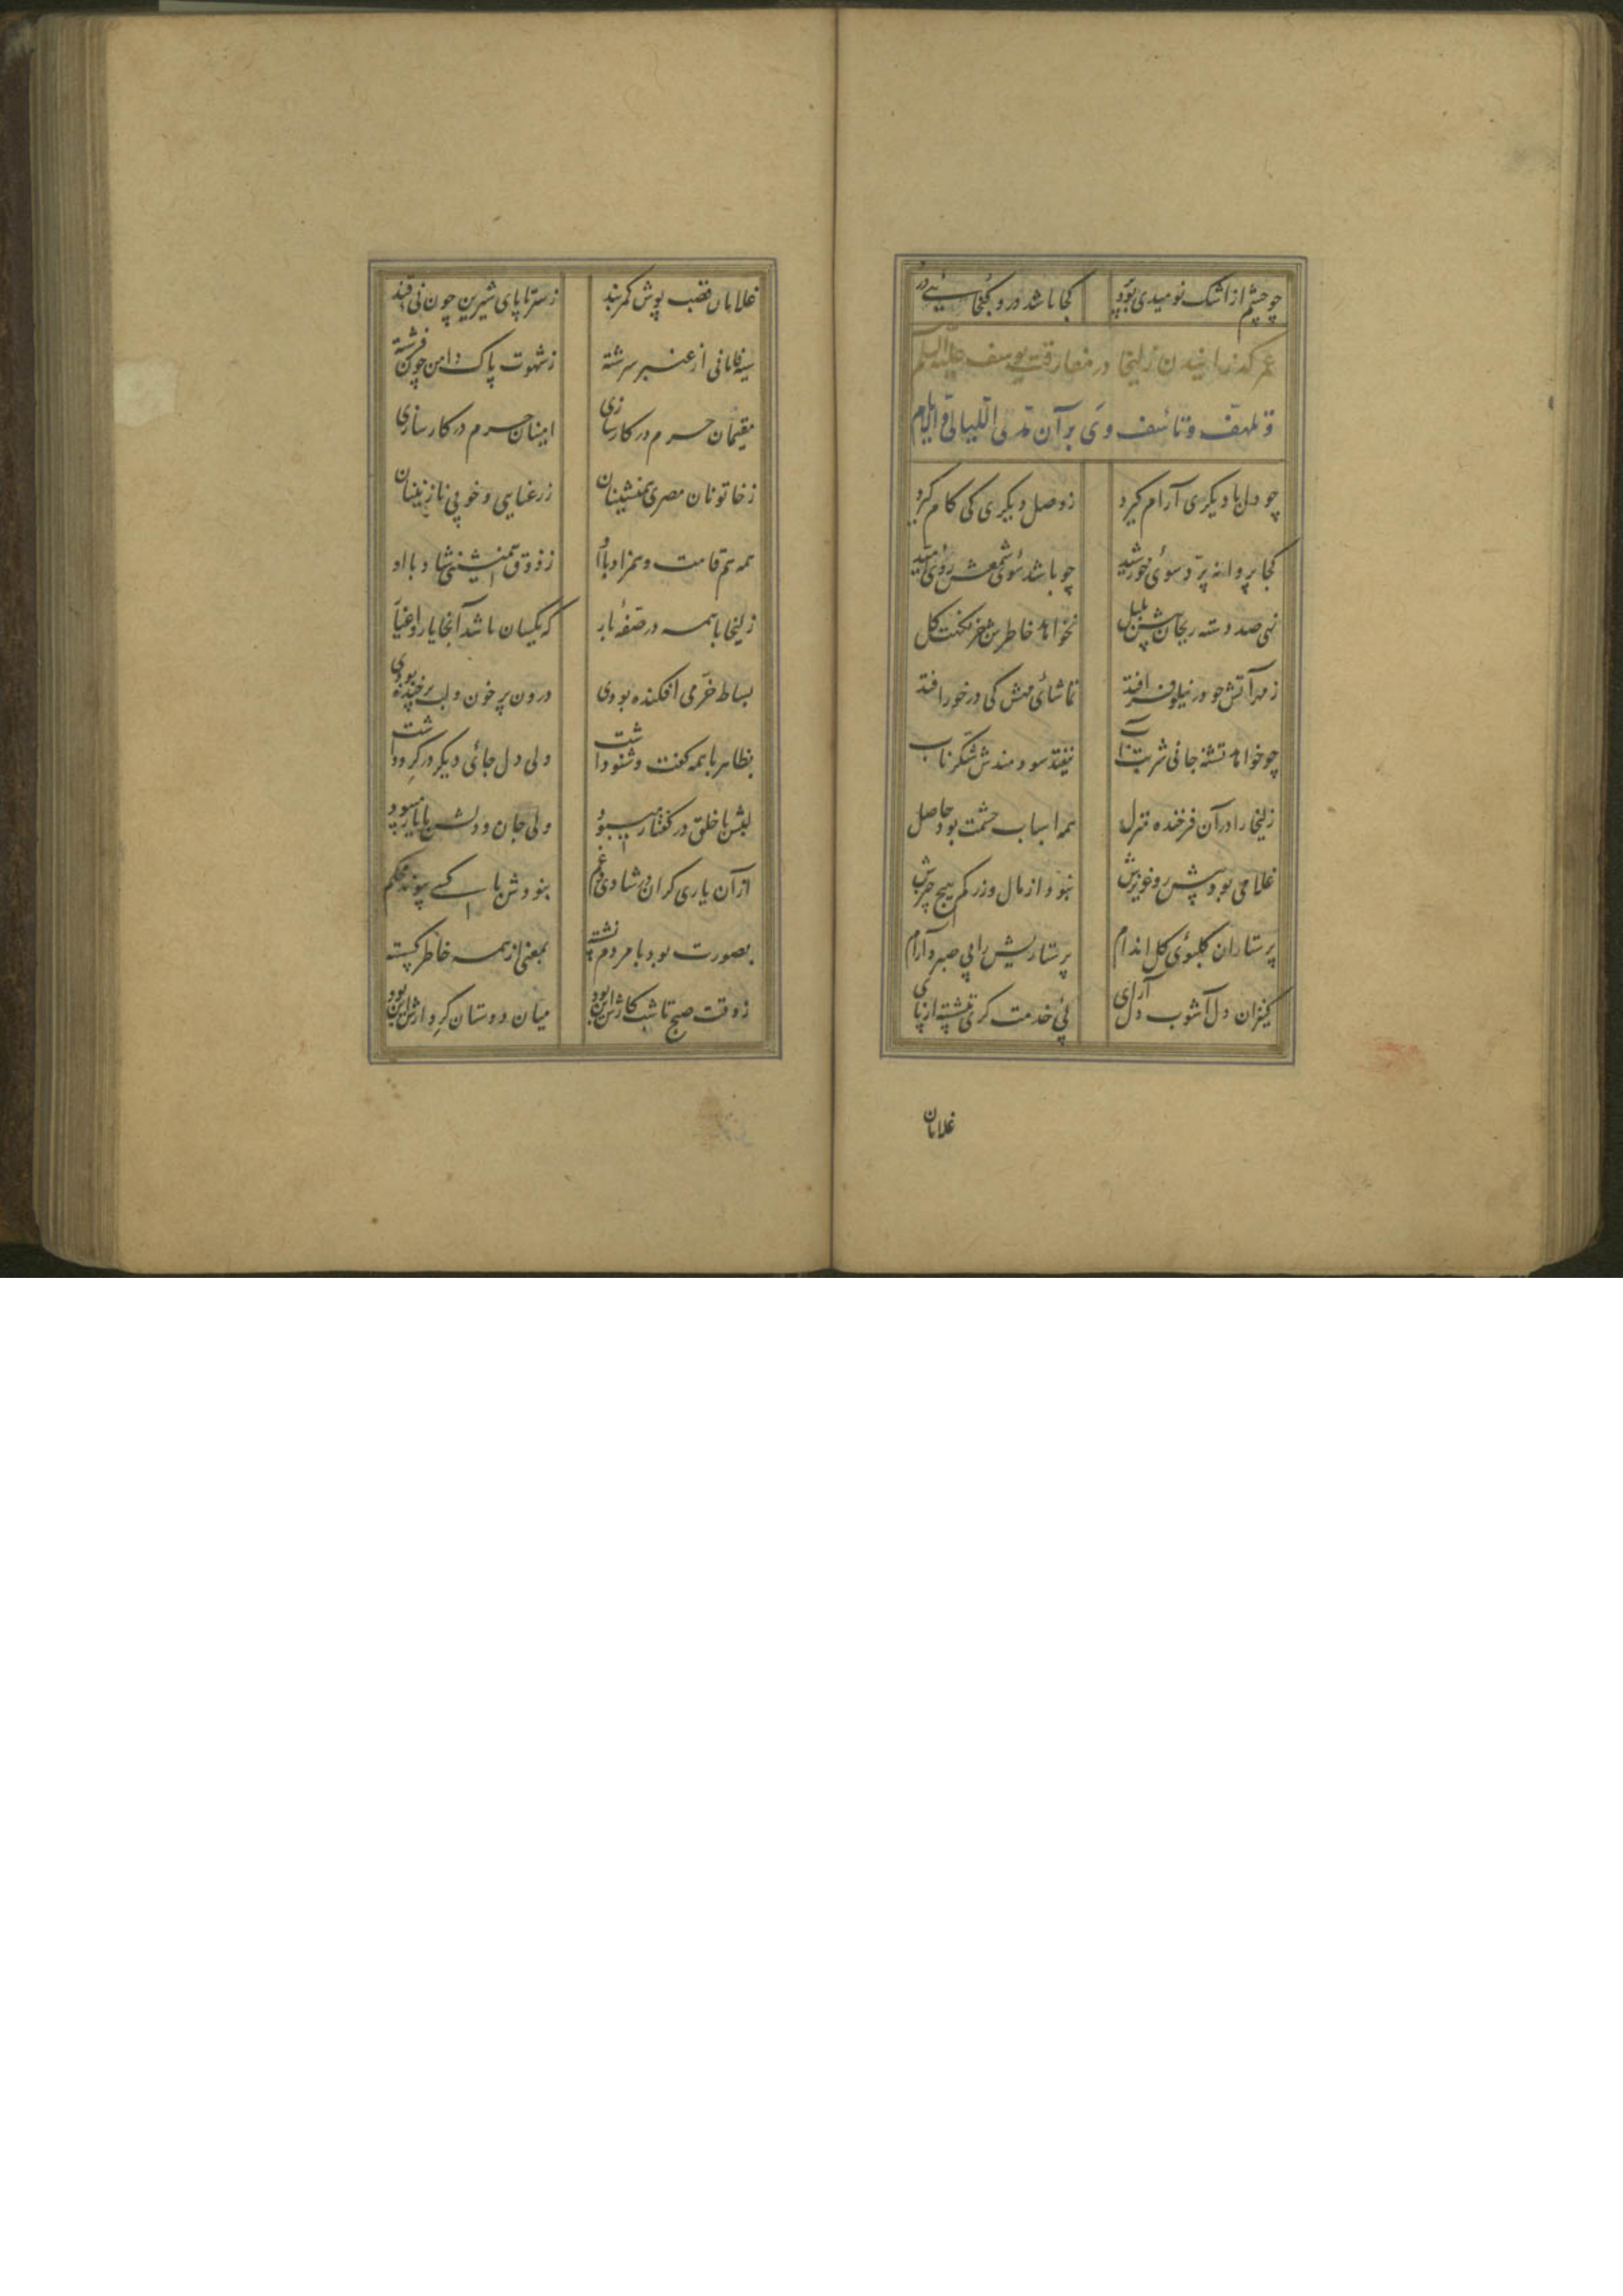 چو چشم از اشک نومیدی بود پر کجا باشد درو گنجائی در
عمر گذرانیدن زلیخا در مفارقت یوسف علیه السلم
و تلهف و تأسف وی بر آن علی اللیالی و الایام
چو دل با دیگری آرام گیرد ز وصل دیگری کی کام گیرد
کجا پروانه پرد سوی خورشید چو باشد سوی شمعش روی امید
نهی صد دسته ریحان پیش بلبل نخواهد خاطرش جز نکهت گل
ز مهر آتش چو در نیلوفر افتد تماشای مهش کی درخور افتد
چو خواهد تشنه جانی شربت آب نیفتد سودمندش شکر ناب
زلیخا را در آن فرخنده منزل همه اسباب حشمت بود حاصل
غلامی بود پیش رو عزیزش نبود از مال و زر کم هیچ چیزش
پرستاران گلبوی گل اندام پرستاریش را بی صبر و آرام
کنیزان دل آشوب دل آرای پی خدمتگری ننشسته از پای
غلامان
غلامان قصب پوش کمربند ز سر تا پای شیرین چون نی قند
سیه فامانی از عنبر سرشته ز شهوت پاک دامن چون فرشته
مقیمان حرم در کارسازی امینان حرم در کارسازی
ز خاتونان مصری همنشینان ز رعنایی و خوبی نازنینان
همه هم قامت و همزاد با او ز ذوق همنشینی شاد با او
زلیخا با همه در صفهٔ بار که یکسان باشد آنجا یار و اغیار
بساط خرمی افکنده بودی درون پر خون و لب پر خنده بودی
بظاهر با همه گفت و شنو داشت ولی دل جای دیگر در گرو داشت
لبش با خلق در گفتار میبود ولی جان و دلش با یار میبود
از آن یاری گران در شادی و غم نبودش با کسی پیوند محکم
بصورت بود با مردم نشسته بمعنی از همه خاطر گسسته
ز وقت صبح تا شب کارش این بود میان دوستان کردارش این بود